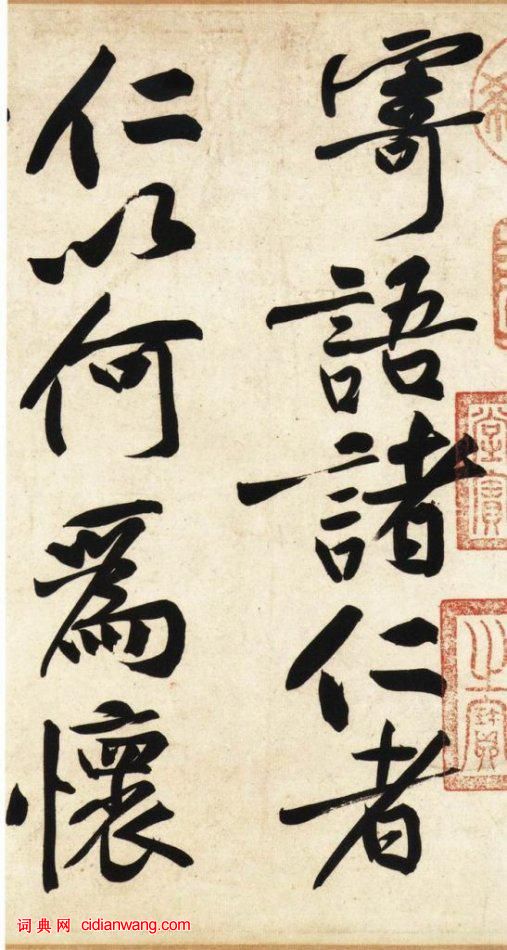 寄語諸仁者
仁以何為懷
词典网 cidianwang.com